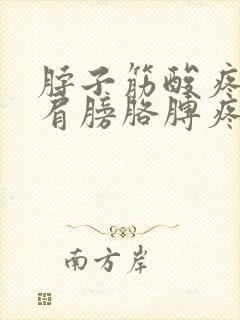 脖子筋酸疼
肩膀胳脾疼
南方岸